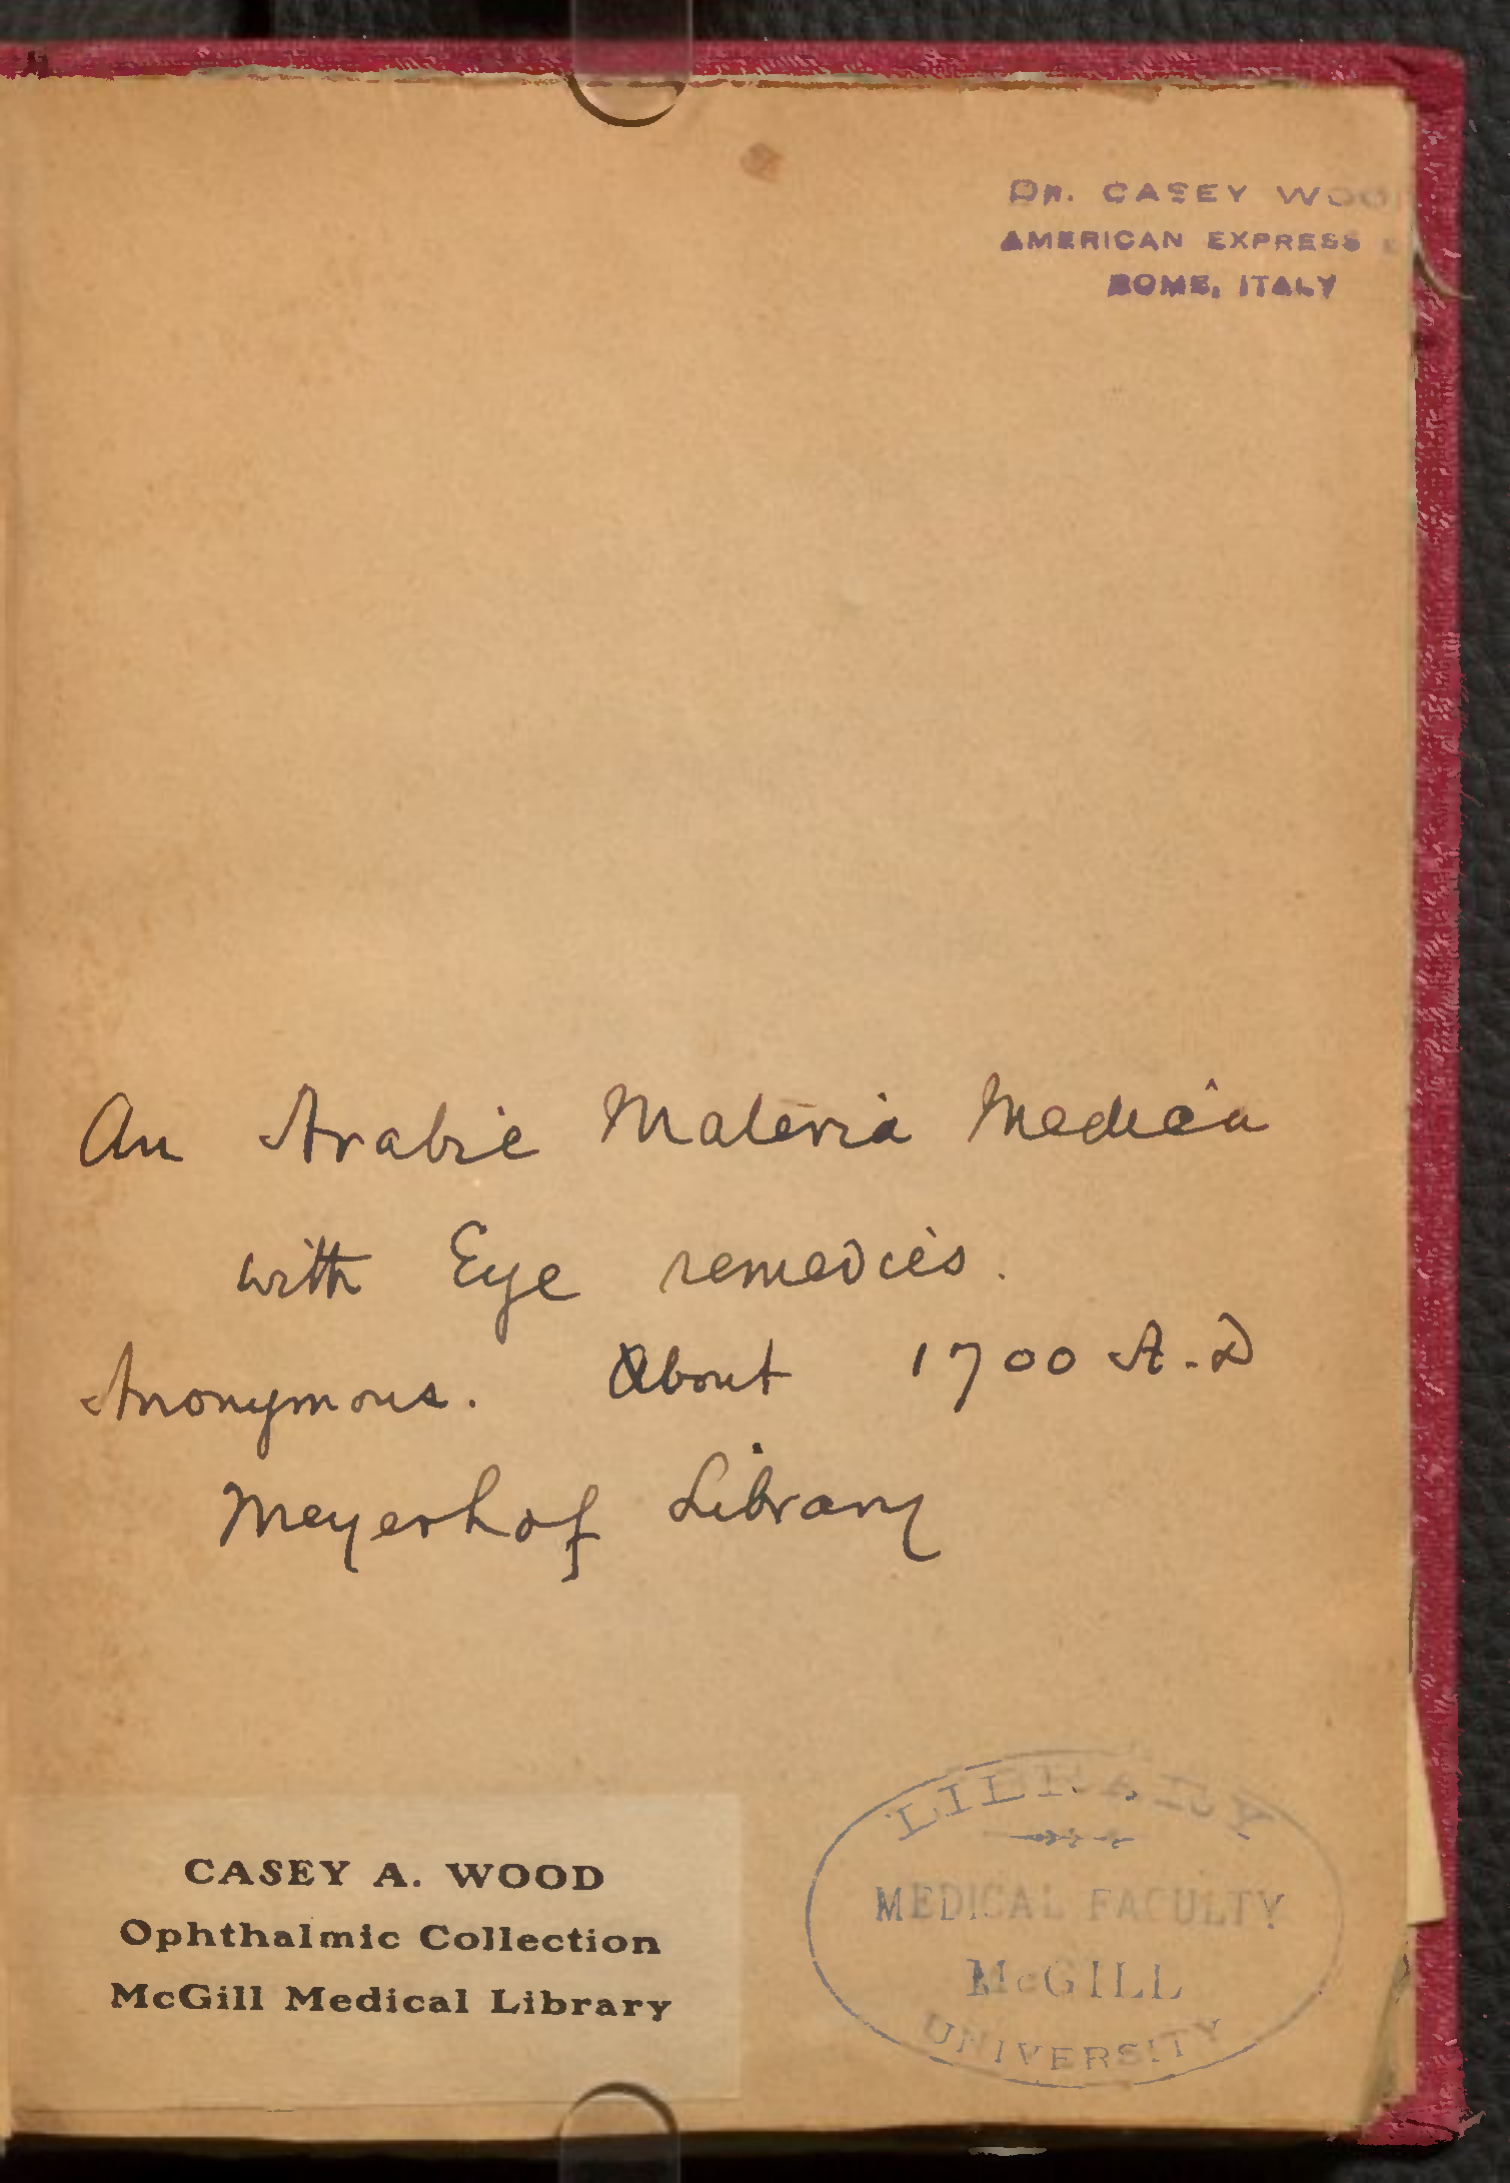 Dr. CASEY WOOD
AMERICAN EXPRESS
ROME, ITALY
An Arabic Materia Medica
with Eye remedies.
Anonymous. About 1700 A.D
Meyerhof Library
CASEY A. WOOD
Ophthalmic Collection
McGill Medical Library
LIBRARY
MEDICAL FACULTY
McGILL
UNIVERSITY